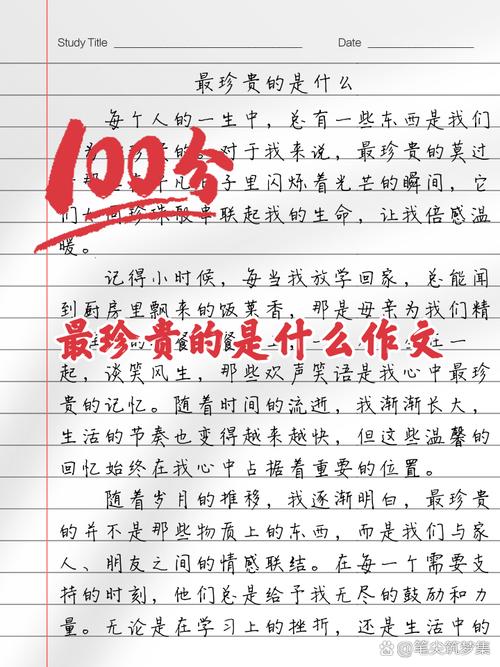 Study Title
Date
最珍贵的是什么
每个人的一生中,总有一些东西是我们
100分
珍贵的。对于我来说,最珍贵的莫过
子里闪烁着光芒的瞬间,它
们如同珍珠般串联起我的生命,让我倍感温
暖。
记得小时候,每当我放学回家,总能闻
到厨房里飘来的饭菜香,那是母亲为我们精
最珍贵的是什么作文
起,谈笑风生,那些欢声笑语是我心中最珍
贵的记忆。随着时间的流逝,我渐渐长大,
生活的节奏也变得越来越快,但这些温馨的
回忆始终在我心中占据着重要的位置。
随着岁月的推移,我逐渐明白,最珍贵
的并不是那些物质上的东西,而是我们与家
人、朋友之间的情感联结。在每一个需要支
持的时刻,他们总是给予我无尽的鼓励和力
量。无论是在学习上的挫折,还是生活中的
笔尖筑梦集